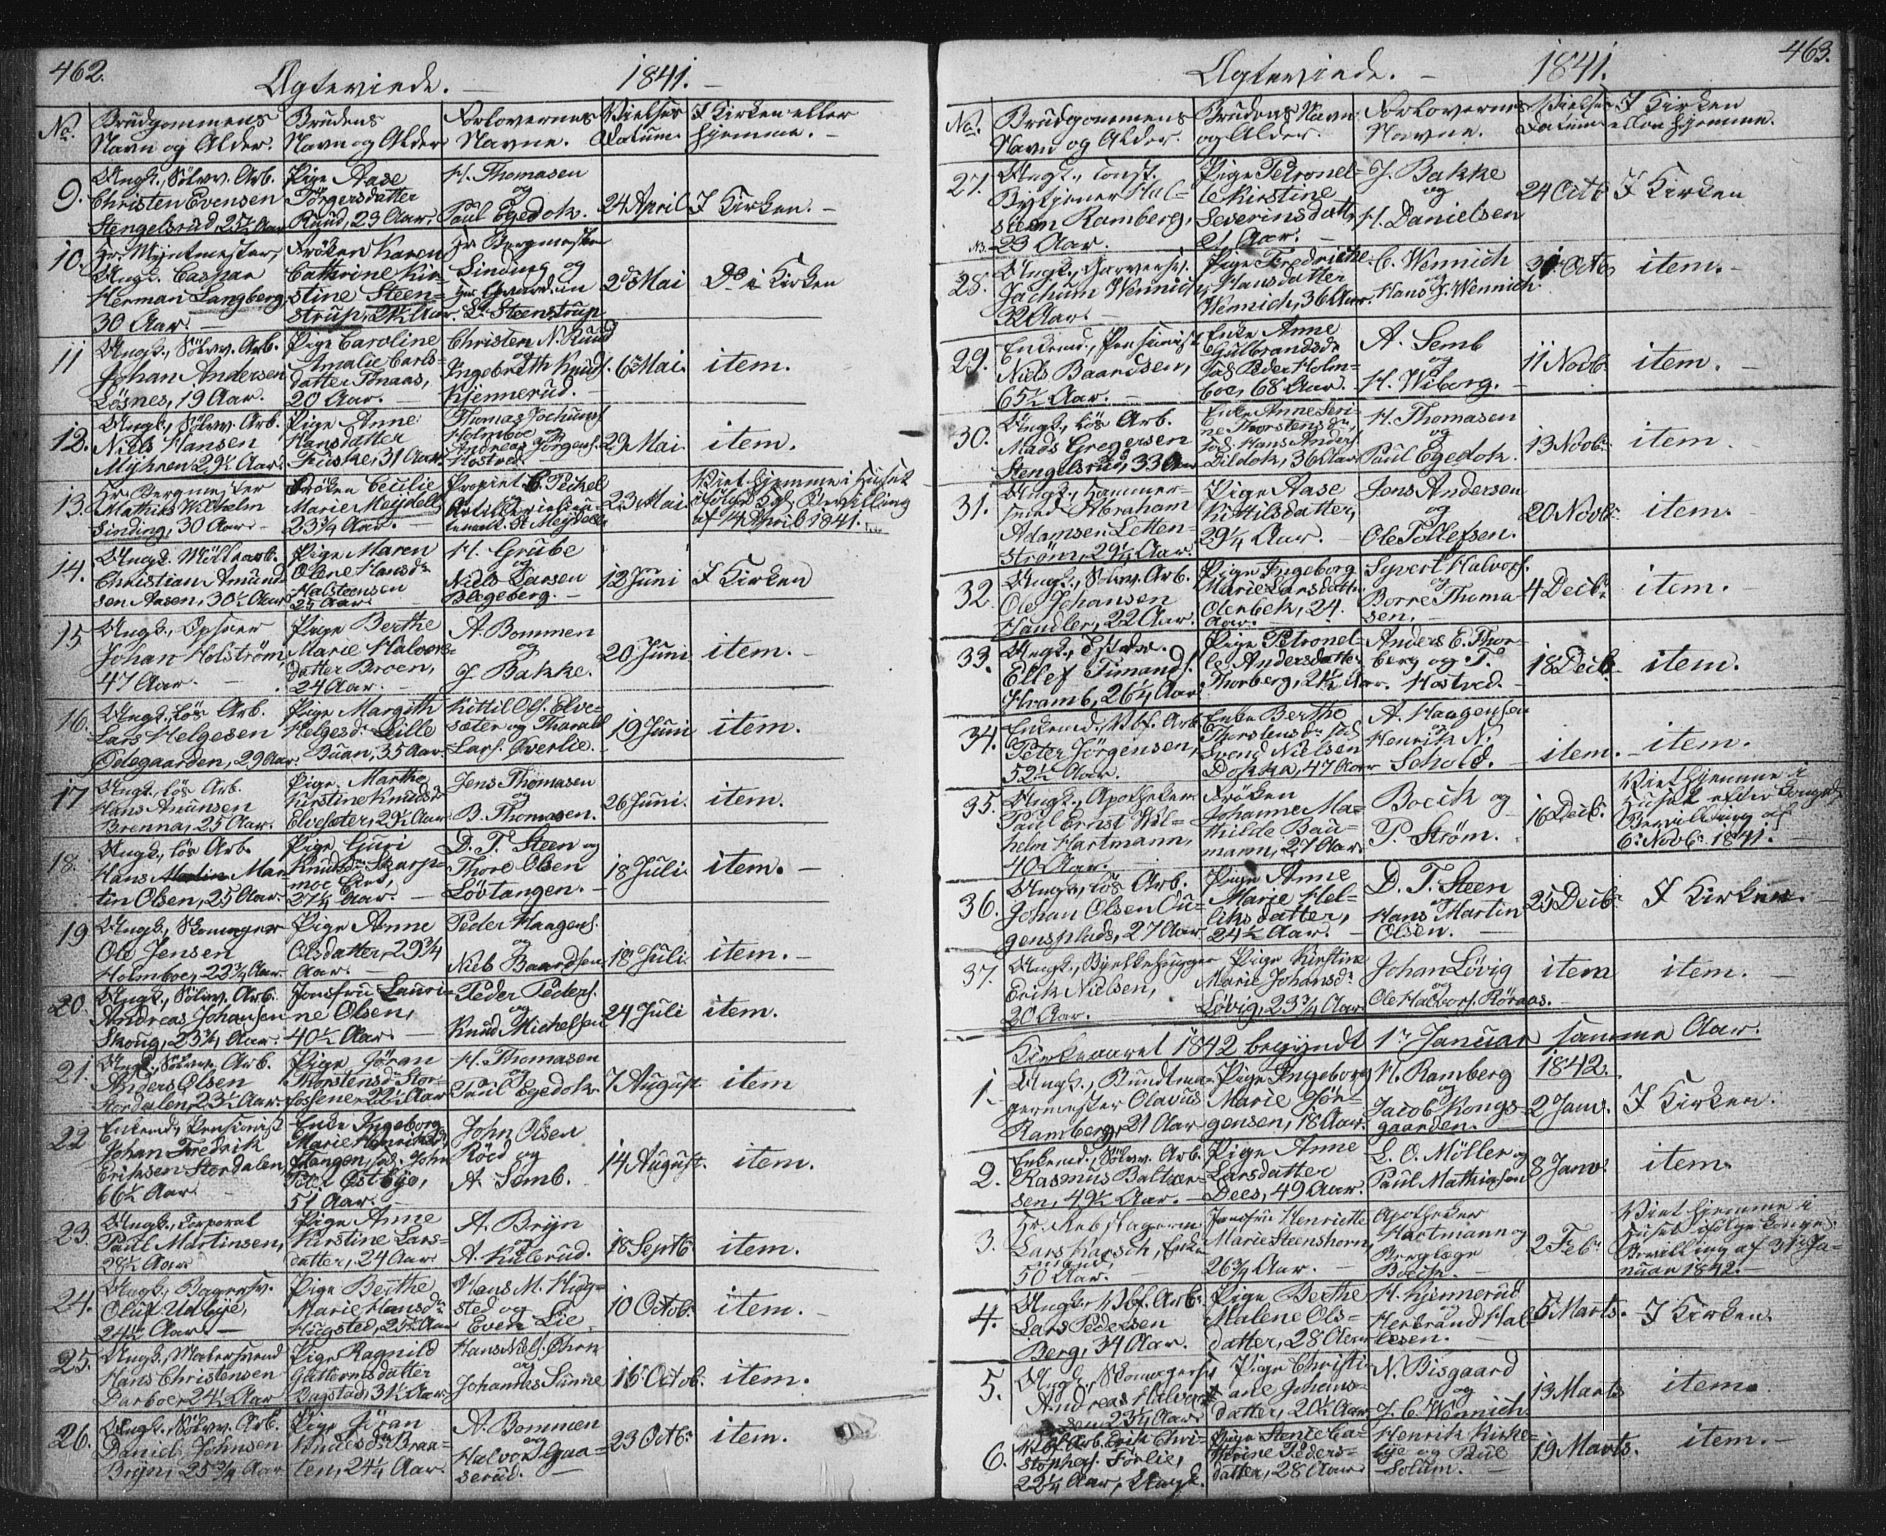 462.
Ægteviede. — 1841. —
No.
Brudgommens
Navn og Alder.
Brudens
Navn og Alder
Forlovernes
Navne.
Vielses
Datum
I Kirken eller
hjemme. —
9.
Ungk., Sölvv. Arb.
Christen Evensen
Stengelsrud, 25½ Aar
Pige Aase
Törgersdatter
Ruud, 23 Aar.
H. Thomasen
og
Paul Egedok.
24 April
I Kirken. —
10.
Hr. Myntmester,
Ungk. Caspar
Herman Langberg
30 Aar. —
Fröken Karen
Cathrine Kir-
stine Steen-
strup, 21½ Aar.
Hr. Bergmester
Sinding og
St. Steenstrup
2 Mai
Do i Kirken
11
Ungk., Sölvv. Arb.
Johan Andersen
Lösnes, 19 Aar.
Pige Caroline
Amalie Carls-
datter Fonaas,
20 Aar. —
Christen N. Ruud
og
Ingebreth Knuds.
Kjennerud. —
6 Mai.
item.
12.
Ungk., Sölvv. Arb.
Niels Hansen
Myhren 29½ Aar.
Pige Anne
Hansdatter
Fuske, 31 Aar
Thomas Jochums.
Holmboe og
Andreas Jörgens.
Hostved
29 Mai
item.
13.
Hr. Bergmester
Mathias Wilhelm
Sinding, 30 Aar. —
Fröken Cecilie
Marie Meydell
23¾ Aar. —
Propriet. C. Peckel
St. Meydell
23 Mai
Viet hjemme i Huset
ifölge Kgl. Bevilling
af 14 April 1841.
14.
Ungk. Möllearb.
Christian Amund-
sen Aasen, 30½ Aar
Pige Maren
Oline Hansdr
Halsteensen
25 Aar.
H. Grube
og
Niels Larsen
Blegeberg. —
12 Juni
I Kirken
15
Ungk., Opseer
Johan Holström,
47 Aar. —
Pige Berthe
Marie Halvors-
datter Broen,
24 Aar. —
A. Bommen
og
J. Bakke.
20 Juni
item. —
16.
Ungk., lös Arb.
Lars Helgesen
Ödegaarden, 29 Aar.
Pige Margith
Helgesdr Lille
Buan, 35 Aar
Kittil Ols. Elve-
sæter og Tharald
Lars. Överlie. —
19 Juni
item.
17
Ungk., lös Arb.
Hans Anunsen
Brenna, 25 Aar.
Pige, Marthe
Kirstine Knudsdr
Elvesæter, 29½ Aar
Jens Thomasen
og
B. Thomasen.
26 Juni.
item.
18.
Ungk., lös Arb.
Hans Mar-
tin Olsen, 25 Aar.
Pige Guri
Knudsdr Skarp-
moe Eied,
37½ Aar. —
D. T. Steen og
Thore Olsen
Lövtangen. —
18 Juli
item. —
19
Ungk., Skomager
Ole Jensen
Holmboe, 23¾ Aar.
Pige Anne
Olsdatter, 29¾
Aar. —
Peder Haagens.
og
Niels Baardsen
18 Juli.
item. —
20.
Ungk., Sölvv. Arb.
Andreas Johansen
Skoug, 23¾ Aar.
Jomfru Lauri-
ne Olsen,
40½ Aar. —
Peder Peders.
og
Knud Michelsen
24 Juli
item.
21.
Ungk., Sölvv. Arb.
Anders Olsen
Stordalen, 23½ Aar.
Pige Jöran
Thorstensdr Stor-
fossene, 22½ Aar
H. Thomasen
og
Paul Egedok.
7 August
item
22
Enkemd., Pensionist
Johan Fredrik
Eriksen Stordalen,
66½ Aar.
Enke Ingeborg
Marie Henriksdr
Stangen, sal. John
Pol. Östbye,
51 Aar. —
John Olsen
Röed og
A. Semb.
14 August.
item.
23.
Ungk., Corporal
Paul Martinsen,
28½ Aar
Pige Anne
Kirstine Lars-
datter, 24 Aar
A. Bryn
og
A. Kulerud.
18 Septb
item.
24.
Ungk., Bagersv.
Oluf Udbye,
24½ Aar. —
Pige Berthe
Marie Hansdr
Hugsted, 25½ Aar
Hans M. Hug-
sted og
Even Lie
10 Octob.
item. —
25.
Ungk., Malersvend
Hans Christensen
Darboe, 24½ Aar
Pige Ragnild
Guttormsdatter
Bagstad, 31½ Aar,
Hans Niels. Öhrn
og
Johannes Sunne
16 Octob.
item.
26.
Ungk., Sölvv. Arb.
Daniel Johnsen
Bryn, 25¾ Aar
Pige Jöran
Knudsdr Braa-
ten, 24¼ Aar.
A. Bommen
og
Halvor Gaa-
serud. —
23 Octb.
item.
463.
Ægteviede. — 1841.
No.
Brudgommens
Navn og Alder.
Brudens Navn
og Alder.
Forlovernes
Navne.
Vielses
Datum
I Kirken
eller hjemme.
27.
Ungk., const.
Bytjener Hal-
steen Ramberg,
23 Aar.
Pige Petronel-
le Kirstine
Severinsdatter
21 Aar. —
J. Bakke
og
H. Danielsen
24 Octb
I Kirken
28.
Ungk., Garversv.
Jochum Wennich
32 Aar. —
Pige Fredrikke
Hansdatter
Wennich, 36 Aar.
C. Wennich
og
Hans J. Wennich.
Octb
item. —
29.
Enkemd., Pensionist
Niels Baardsen,
65½ Aar. —
Enke Anne
Gulbrandsdr
sal. Peder Holm-
boe, 68 Aar.
A. Semb
og
H. Wiborg.
11 Novb.
item. —
30.
Ungk., lös Arb.
Mads Gregersen
Stengelsrud, 33 Aar
Enke Anne Seri-
ne Thorstensdr,
sal. Hans Anders.
Lildok, 36 Aar
H. Thomasen
og
Paul Egedok.
13 Novb.
item
31.
Ungk., Hammer-
smed Abraham
Adamsen Letten-
ström, 29½ Aar.
Pige Aase
Kittilsdatter,
29¼ Aar. —
Jens Andersen
og
Ole Tollefsen.
20 Novb.
item. —
32.
Ungk., Sölvv. Arb.
Ole Johansen
Handler, 22 Aar.
Pige Ingeborg
Marie Larsdatter
Olerbek, 24.
Aar. —
Syvert Halvors.
og
Borre Thoma
sen. —
4 Decb.
item. —
33.
Ellef Simonds.
Hvamb, 26¼ Aar
Pige Petronel-
le Andersdatter
Thorberg, 21½ Aar.
Anders E. Thor-
berg og T.
Hostved. —
18 Decb.
item.
34.
Enkemd., Vbf. Arb.
Peter Jörgensen,
52½ Aar.
Enke Berthe
Thorstensdr sal.
Svend Nielsen
Dokka, 47 Aar
A. Haagensen
og
Henrik N.
Schold. —
item. —
item.
35.
Ungk., Apotheker
Paul Ernst Wil-
helm Hartmann,
40 Aar.
Fröken
Johanne Ma-
thilde Bau-
mann, 27 Aar.
Boeck og
P. Ström.
16 Decb.
Viet hjemme i
Huset efter Kongel.
Bevilling af
6 Novb. 1841.
36.
Ungk., lös Arb.
Johan Olsen Ou-
gensplads, 27 Aar
Pige Anne
Marie Hel-
liksdatter,
24½ Aar. —
D. T. Steen
og
Hans Martin
Olsen. —
25 Decb.
I Kirken. —
37.
Ungk., Bjelkehugger
Erik Nielsen,
20 Aar.
Pige Kirstine
Marie Johansdr
Lövig, 23¾ Aar.
Johan Lövig
og
Ole Halvors. Röraas. —
item
item. —
Kirkeaaret 1842 begyndt 1 Januar samme Aar.
1842.
1.
Ungk., Buntma-
germester Olavus
Ramberg, 21 Aar
Pige Ingeborg
Marie Jör-
gensen, 18 Aar.
H. Ramberg
og
Jacob Kongs-
gaarden. —
2 Janr.
I Kirken.
2.
Enkemd., Sölvv. Arb.
Rasmus Baltzer-
sen, 49½ Aar. —
Pige Anne
Larsdatter
Dees, 49 Aar.
L. O. Möller og
Paul Mathiesen
8 Janr.
item.
3.
Hr. Reb slagerm.
Lars Karsch, Enke
mand,
50 Aar.
Jomfru Henriette
Marie Steenshorn,
26¾ Aar. —
Apotheker
Hartmann og
Berglæge
Boeck. —
2 Feb.
Viet hjemme i
Huset ifölge Konge
Bevilling af 31 Ja-
nuar 1842. —
4.
Ungk., Vbf. Arb.
Lars Pedersen
Berg, 34 Aar.
Pige Berthe
Malene Ols-
datter, 28 Aar
H. Kjennerud
og
Herbrand Hal-
lesen. —
5 Marts.
I Kirken.
5.
Ungk., Skomagersv.
Andreas Halvor-
sen 23¾ Aar
Pige Christi-
ane Johans-
datter, 20½ Aar
N. Bisgaard
og
J. C. Wennich.
13 Marts
item.
6.
Vbf. Arb. Erik Chri-
stophers. Förlie,
22¼ Aar, Ungk.
Pige Stenie Ca-
thrine Peders-
datter, 28 Aar
Henrik Kirke-
bye og Paul
Solum. —
19 Marts.
item. —